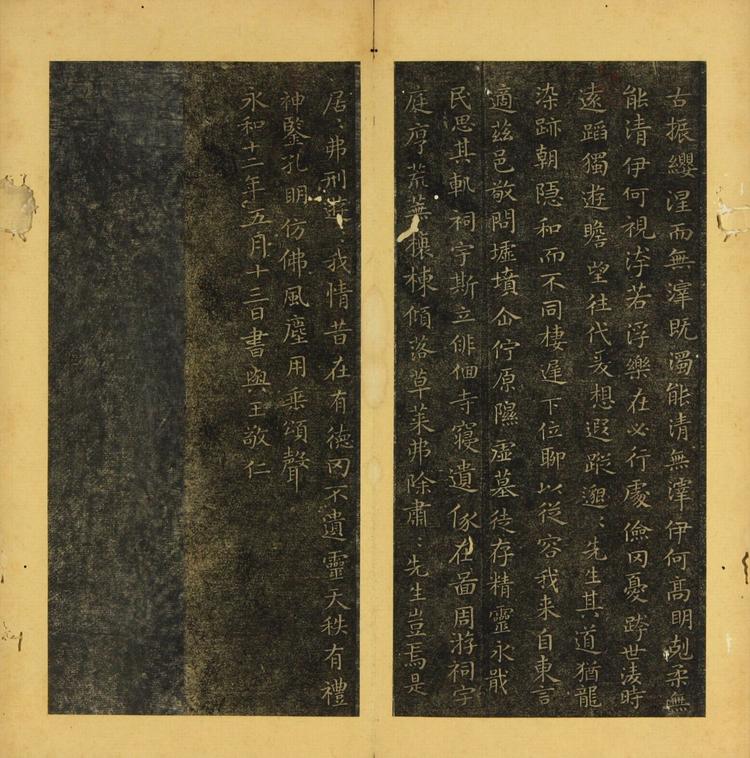 古振纓涅而無滓既濁能清無滓伊何高明剋柔無
能清伊何視洿若浮樂在必行處儉罔憂跨世淩時
遠蹈獨遊瞻望往代爰想遐蹤邈〻先生其道猶龍
染跡朝隱和而不同棲遲下位聊以從容我来自東言
適茲邑敬問墟墳企佇原隰虛墓徒存精靈永戢
民思其軌祠宇斯立俳佪寺寢遺像在啚周游祠宇
庭序荒蕪榱棟傾落草萊弗除肅〻先生豈焉是
居〻弗刑遊〻我情昔在有德罔不遺靈天秩有禮
神鑒孔明仿佛風塵用垂頌聲
永和十二年五月十三日書與王敬仁